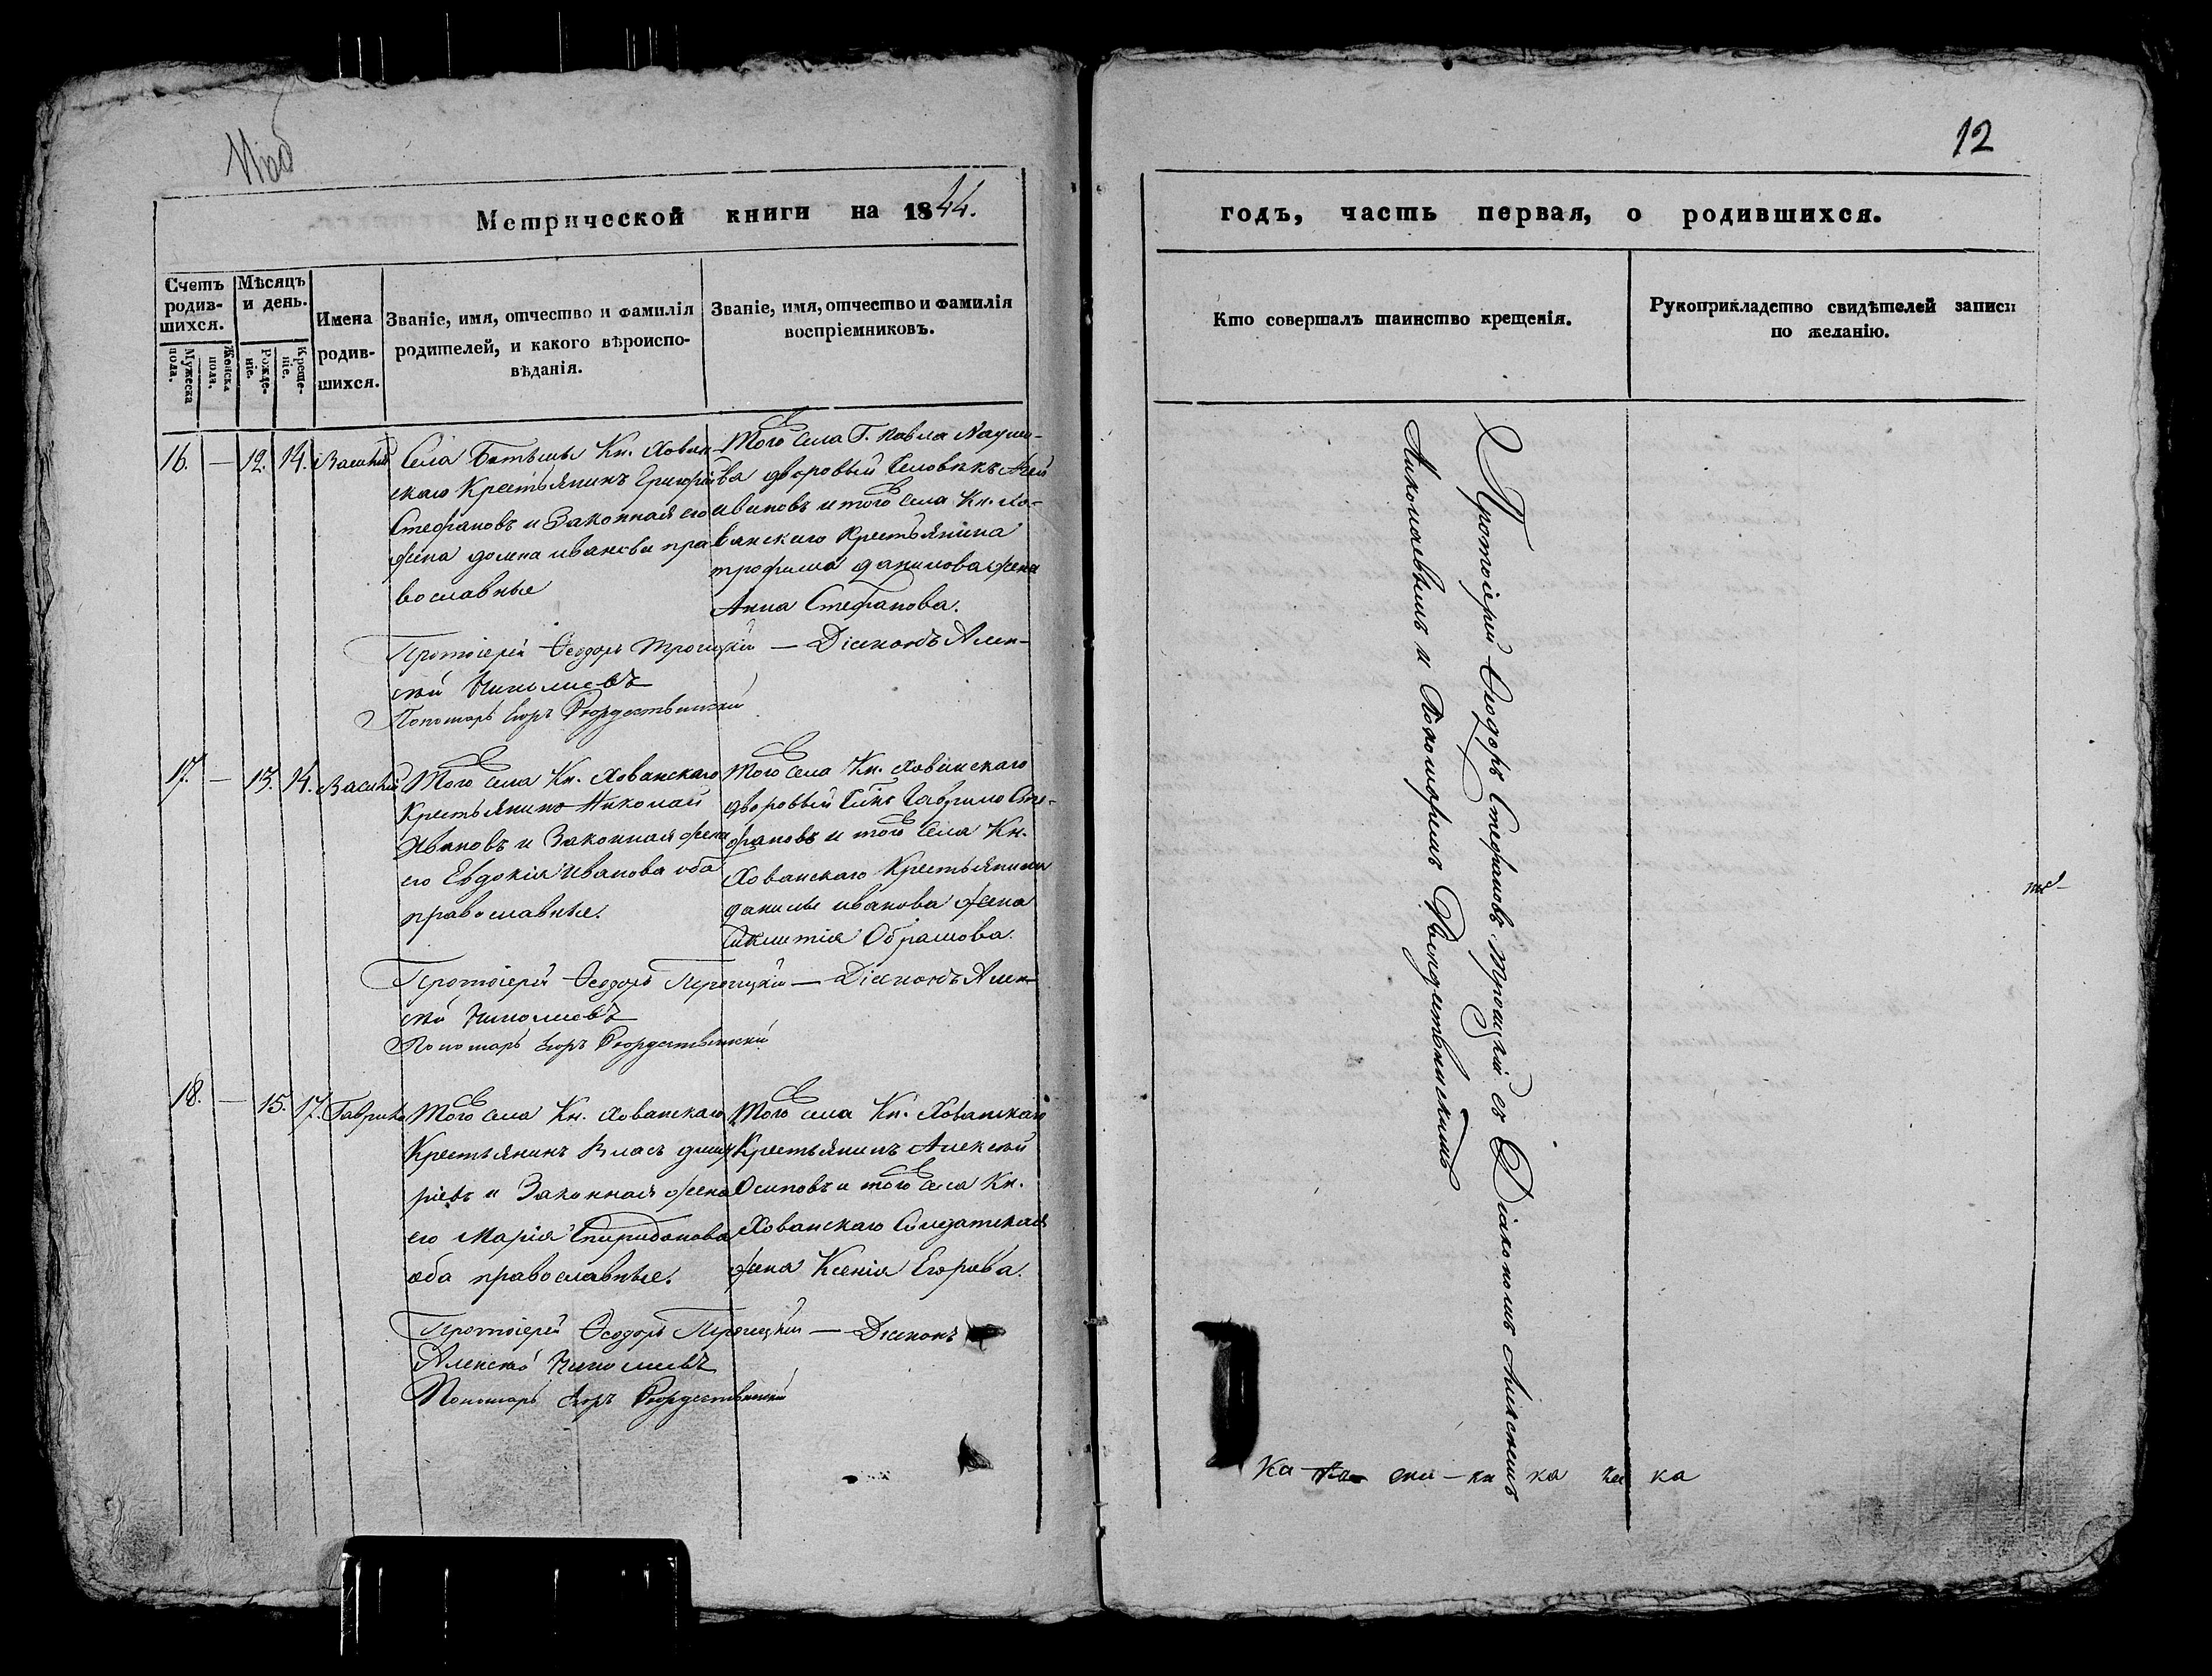 12
Метрической книги на 1844.
годъ, часть первая, о родившихся.
Счетъ родив-шихся.
Мужеска пола.
Женска пола.
Мѣсяцъ и день.
Рожде-ніе.
Креще-ніе.
Имена родив-шихся.
Званіе, имя, отчество и фамилія родителей, и какого вѣроиспо-вѣданія.
Званіе, имя, отчество и фамилія воспріемниковъ.
Кто совершалъ таинство крещенія.
Рукоприкладство свидѣтелей записи по желанію.
16. — 12. 14. Василій
Села Кн. Хован-
скаго Крестьянинъ Григорій
Стефановъ и Законная его
жена домна иванова пра
вославные
Того Села Г. павла
ва дворовый Человѣкъ
ивановъ и того Села Кн. Хо-
ванскаго Крестьянина
трофима данилова жена
Анна Стефанова.
Протоіерей Ѳеодоръ Троицкій — Діаконъ Алек-
сѣй Николаевъ
Пономарь Егоръ Рождественскій
17. — 13. 14. Василій
Того Села Кн. Хованскаго
Крестьянинъ Николай
Ивановъ и Законная жена
его Евдокія Иванова оба
православные.
Того Села Кн. Хованскаго
дворовый Гаврило Сте-
фановъ и того Села Кн.
Хованскаго Крестьянина
данилы иванова жена
Обрамова.
Протоіерей Ѳеодоръ Троицкій — Діаконъ Алек-
сѣй Николаевъ
Пономарь Егоръ Рождественскій
18. — 15. 17. Гаврило
Того Села Кн. Хованскаго
Крестьянинъ Власъ дмит
ріевъ и Законная жена
его Марія Спиридонова
оба православные.
Того Села Кн. Хованскаго
Крестьянинъ Алексѣй
Осиповъ и того Села Кн.
Хованскаго Солдатская
жена Ксенія Егорова.
Протоіерей Ѳеодоръ Троицкій — Діаконъ
Алексѣй Николаевъ
Пономарь Егоръ Рождественскій
Протоіерей Ѳеодоръ Стефановъ Троицкій съ Діакономъ Алексѣемъ
Николаевымъ и Пономаремъ Рождественскимъ
ка ка ка